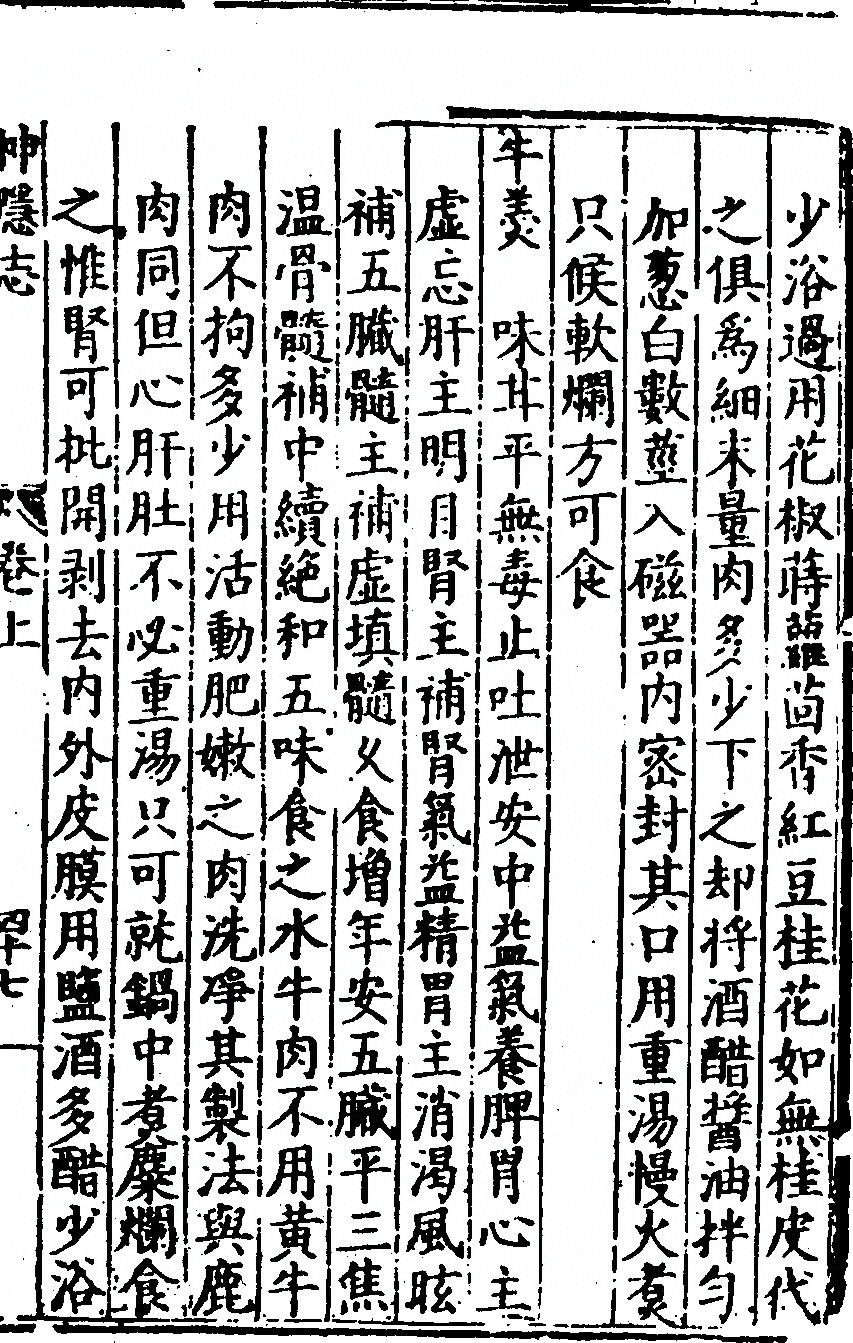 少浴過用花椒蒔蘿茴香紅豆桂花如無桂皮代
之俱爲細末量肉多少下之却将酒醋醬油拌匀
加葱白數莖入磁器内密封其口用重湯慢火煮
只候軟爛方可食
牛羮　味甘平無毒止吐泄安中益氣養脾胃心主
虚忘肝主明目腎主補腎氣益精胃主消渴風眩
補五臓髓主補虚填髓乆食增年安五臓平三焦
温骨髓補中續絶和五味食之水牛肉不用黄牛
肉不拘多少用活動肥嫩之肉洗凈其製法與鹿
肉同但心肝肚不必重湯只可就鍋中煮糜爛食
之惟腎可批開剥去内外皮膜用鹽酒多醋少浴
神隠志　卷上　四十七